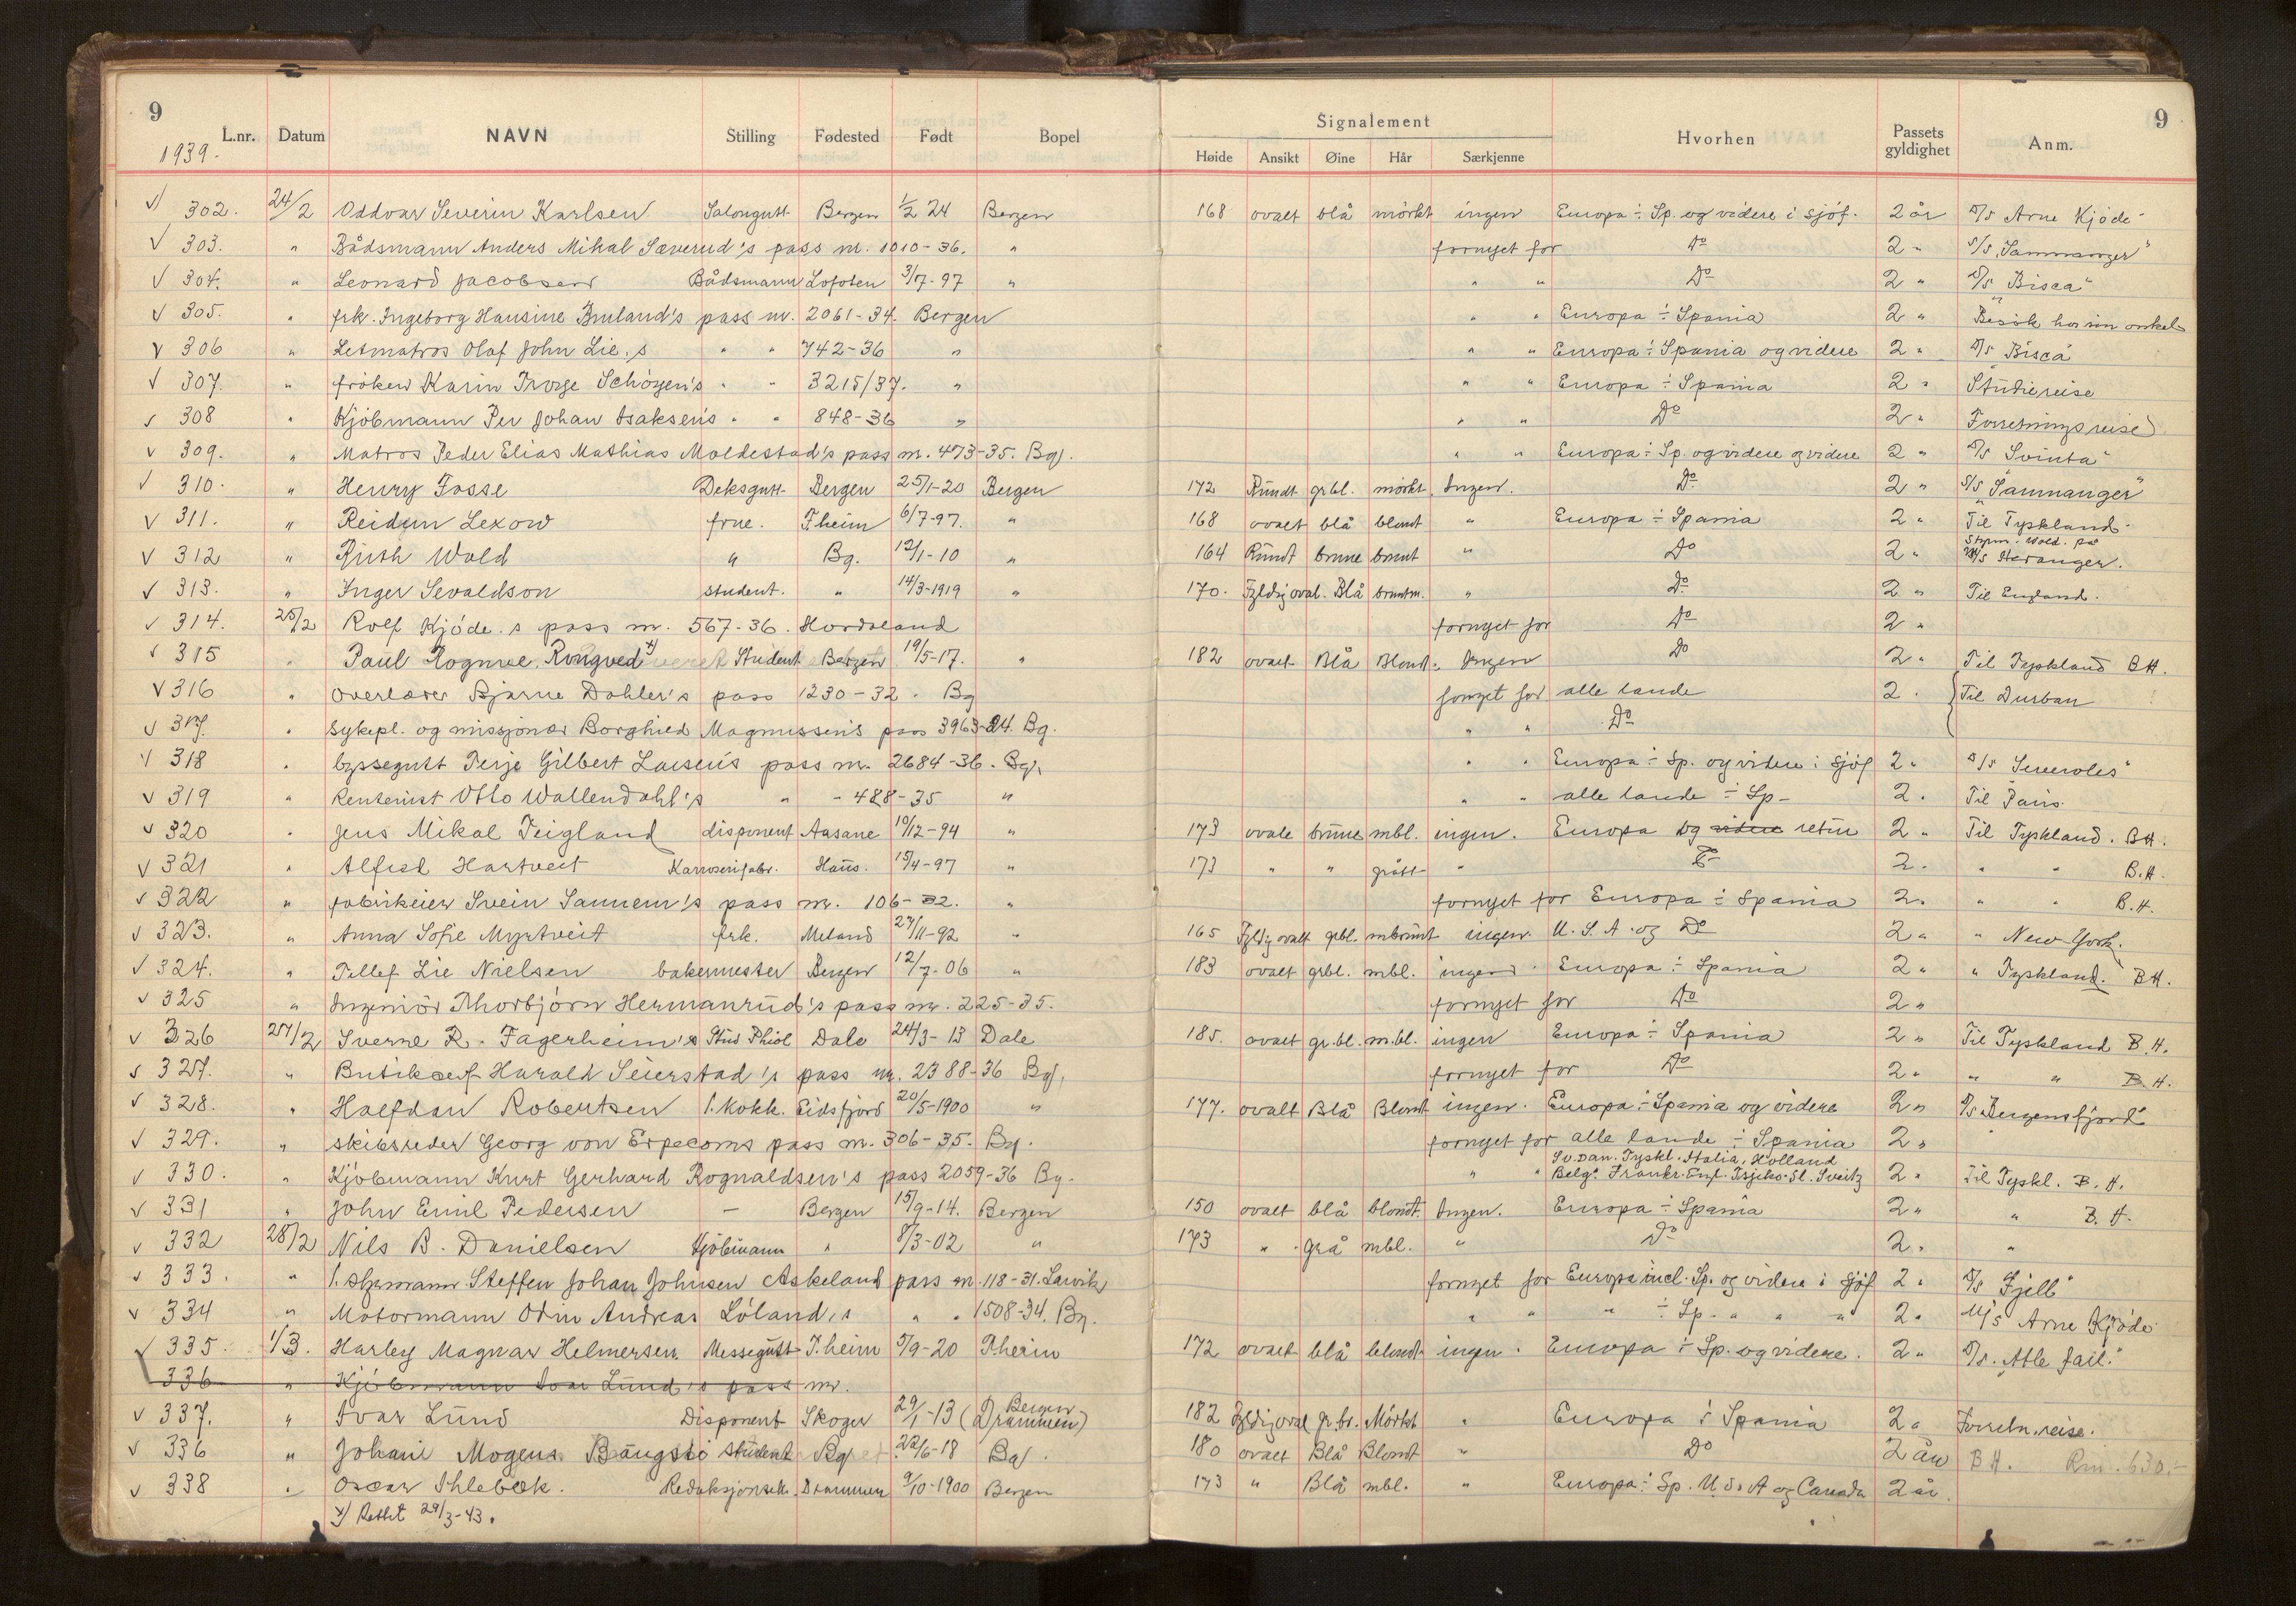 9 9
1939.
L.nr. Datum NAVN Stilling Fødested Født Bopel Signalement Hvorhen Passets gyldighet Anm.
Høide Ansikt Øine Hår Særkjenne
√ 302. 24/2 Oddvar Severin Karlsen Salongutt Bergen 1/2 24 Bergen 168 ovalt blå mörkt ingen Europa ÷ Sp. og videre i sjöf. 2 år M/S Arne Kjöde
√ 303. " Bådsmann Anders Mihal Sæverud's pass nr. 1010-36. " fornyet for Do 2 " S/S "Sammanger"
√ 304. " Leonard Jacobsen Bådsmann Lofoten 3/7-97 " " " Do 2 " S/S "Bisca"
√ 305. " frk. Ingeborg Hansine Bruland's pass nr. 2061-34. Bergen " " Europa ÷ Spania 2 " Besök hos sin onkel
√ 306 " Letmatros Olaf John Lie's " " 742-36 " " " Europa ÷ Spania og videre 2 " S/S Bisca
√ 307. " fröken Karin Troye Schöyen's " " 3215/37. " " " Europa ÷ Spania 2 " Studiereise
√ 308 " Kjöbmann Per Johan Isaksen's " " 848-36 " " " Do 2 " Forretningsreise
√ 309. " Matros Peder Elias Mathias Moldestad's pass nr. 473-35. Bg. " " Europa ÷ Sp. og videre og videre 2 " S/S Svinta
√ 310. " Henry Fosse Deksgutt Bergen 25/1-20 Bergen 172 Rundt grbl. mörkt Ingen. Do 2 " S/S "Samnanger"
√ 311. " Reidun Lexow frue. T.heim 6/7-97. " 168 ovalt blå blondt " Europa ÷ Spania 2 " Til Tyskland.
√ 312 " Ruth Wold " Bg. 12/1-10 " 164 Rundt brune brunt " Do 2 " Styrm. Wold. på M/S Heranger.
√ 313. " Inger Sevaldson student. " 14/3-1919 " 170. Fyldig oval. Blå bruntm. " Do 2 " Til England.
√ 314. 25/2 Rolf Kjöde's pass nr. 567-36. Hordaland fornyet for Do 2 "
√ 315 " Paul Rognve Rongved x) Student Bergen 19/5-17. " 182 ovalt Blå Blond. Ingen Do 2 " Til Tyskland B.H.
√ 316 " Overlærer Bjarne Dahler's pass 1230-32. Bg fornyet for alle lande 2 " Til Durban
√ 317. " Sykepl. og missjonær Borghild Magnussen's pass 3963-24. Bg. " " Do
√ 318 " byssegutt Terje Gilbert Larsen's pass nr. 2684-36. Bg. " " Europa ÷ Sp. og videre i sjöf 2 "
√ 319 " Rentenist Otto Wallendahl's " " 488-35 " " " alle lande ÷ Sp- 2 " Til Paris
√ 320 " Jens Mikal Teigland disponent Aasane 10/12-94 " 173 ovale brune mbl. ingen. Europa og videre retur 2 " Til Tyskland. B.H.
√ 321 " Alfred Hartveit Karroserifabr. Haus. 15/4-97 " 173 " " grått " Do 2 " " " B.H.
√ 322 " fabrikeier Svein Sannem's pass nr. 106-32. " fornyet for Europa ÷ Spania 2 " " " B.H.
√ 323. " Anna Sofie Myrtveit frk. Meland 27/11-92 " 165 Fyldig ovalt grbl. mbrunt ingen. U.S.A. og Do 2 " " New-York.
√ 324. " Tellef Lie Nielsen bakermester Bergen 12/7-06 " 183 ovalt grbl. mbl. ingen. Europa ÷ Spania 2 " " Tyskland. B.H.
√ 325 " Ingeniör Thorbjörn Hermanrud's pass nr. 225-35. fornyet for Do 2 "
√ 326 27/2 Sverne R. Fagerheim's Stud Phiol Dale 24/3-13 Dale 185. ovalt gr.bl. m.bl. ingen Europa ÷ Spania 2 " Til Tyskland B.H.
√ 327. " Butikchef Harald Seierstad's pass nr. 2388-36 Bg. fornyet for Do 2 " " " B.H.
√ 328. " Halfdan Robertsen 1. kokk. Eidsfjord 20/5-1900 " 177. ovalt Blå Blondt ingen. Europa ÷ Spania og videre 2 " S/S Bergensfjord"
√ 329. " skibsreder Georg von Erpecoms pass nr. 306-35. Bg. fornyet for alle lande ÷ Spania 2 "
√ 330. " Kjöbmann Kurt Gerhard Rognaldsen's pass 2059-36 Bg. " " Sv. Dan. Tyskl. Italia. Holland Belg. Frankr. Eng. Tsjeko-Sl. Sveitz 2 " Til Tyskl. B.H.
√ 331 " John Emil Pedersen — Bergen 15/9-14. Bergen 150 ovalt blå blondt. Ingen. Europa ÷ Spania 2 " " B.H.
√ 332 28/2 Nils B. Danielsen Kjöbmann " 8/3-02 " 173 " grå mbl. " Do 2 " "
√ 333. " 1. styrmann Steffen Johan Johnsen Askeland pass nr. 118-31. Larvik fornyet for Europa incl. Sp. og videre i sjöf 2 " S/S "Fjell"
√ 334 " Motormann Odin Andreas Löland's " " 1508-34. Bg. " " " ÷ Sp. " " " 2 " M/S Arne Kjöde
√ 335. 1/3. Harley Magnar Helmersen Messegutt T.heim 5/9-20 T.heim 172 ovalt blå blondt ingen. Europa ÷ Sp. og videre. 2 " S/S. Atle Jarl."
336 " Kjöbmann Ivar Lund's pass nr.
√ 337. " Ivar Lund Disponent Skoger 29/1-13 Bergen (Drammen) 182 Fyldig oval gr.br. Mörkt " Europa ÷ Spania 2 " Forretn.reise.
√ 336 " Johani Mogens Student Bg. 22/6-18 Bg. 180 ovalt Blå Blondt " Do 2 år B.H. Rm. 630.-
√ 338 " Oscar Ihlebæk. Redaksjonsek. Drammen 9/10-1900 Bergen 173 " Blå mbl. " Europa ÷ Sp. U.S.A og Canada 2 år.
x) Rettet 29/3-43.